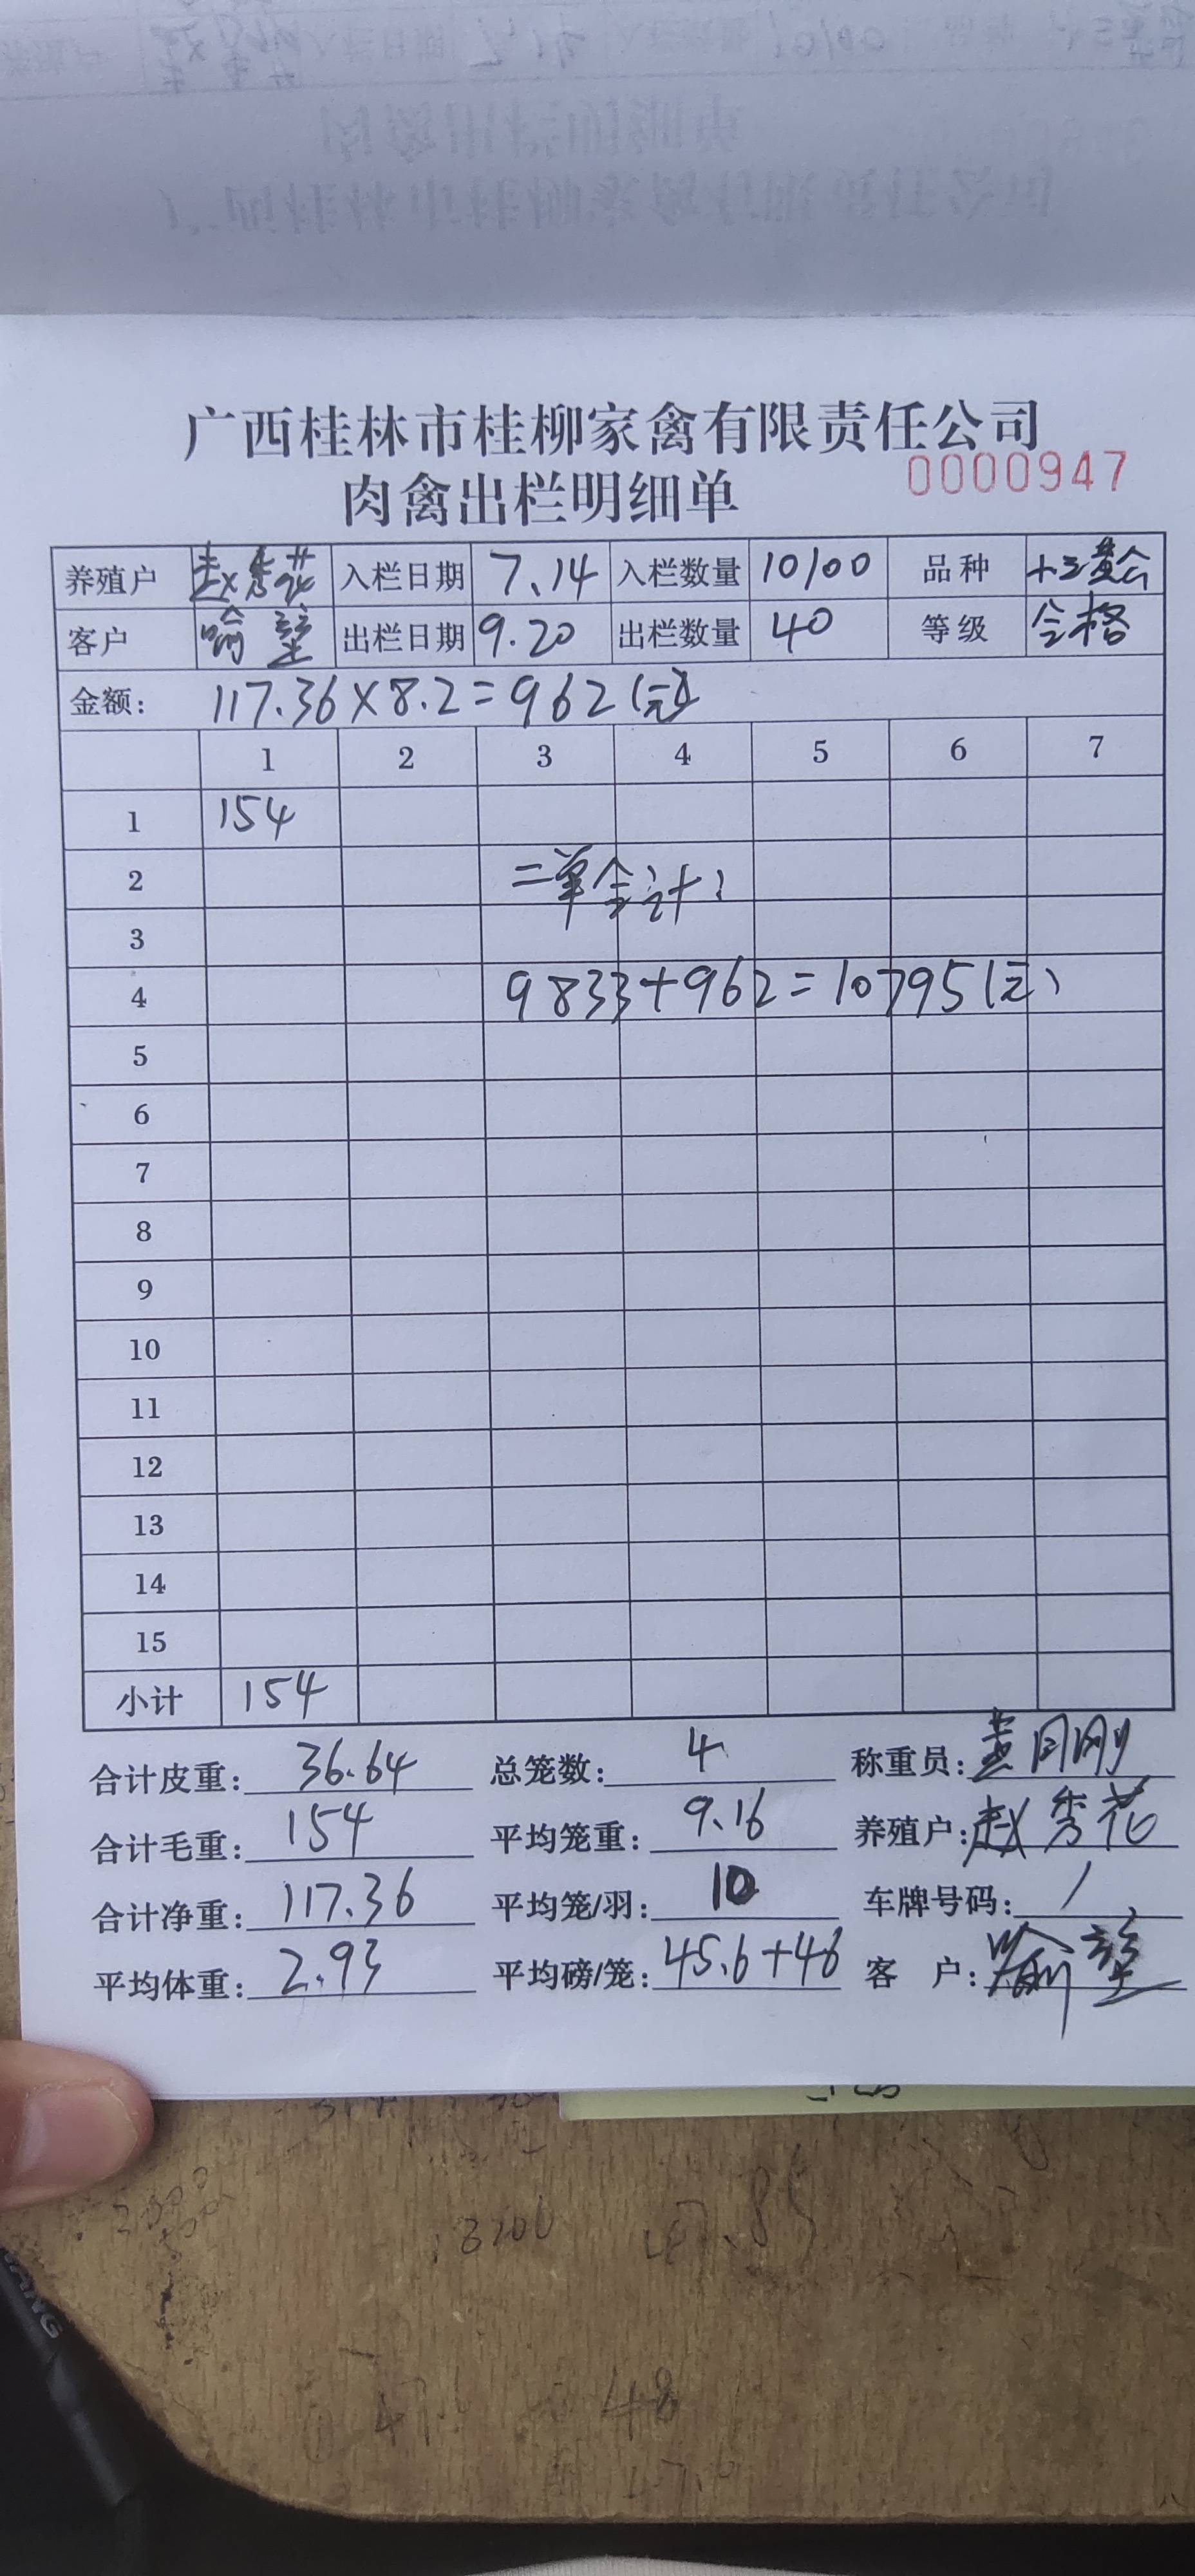 广西桂林市桂柳家禽有限责任公司
0000947
肉禽出栏明细单
养殖户 赵秀花 入栏日期 7.14 入栏数量 10100 品种
客户 喻 出栏日期 9.20 出栏数量 40 等级 合格
金额: 117.36×8.2=962(元)
1 2 3 4 5 6 7
1 154
2 二单合计:
3
4 9833+962=10795(元)
5
6
7
8
9
10
11
12
13
14
15
小计 154
合计皮重: 36.64 总笼数: 4 称重员: 刚
合计毛重: 154 平均笼重: 9.16 养殖户: 赵秀花
合计净重: 117.36 平均笼/羽: 10 车牌号码: /
平均体重: 2.93 平均磅/笼: 45.6+46 客 户: 喻